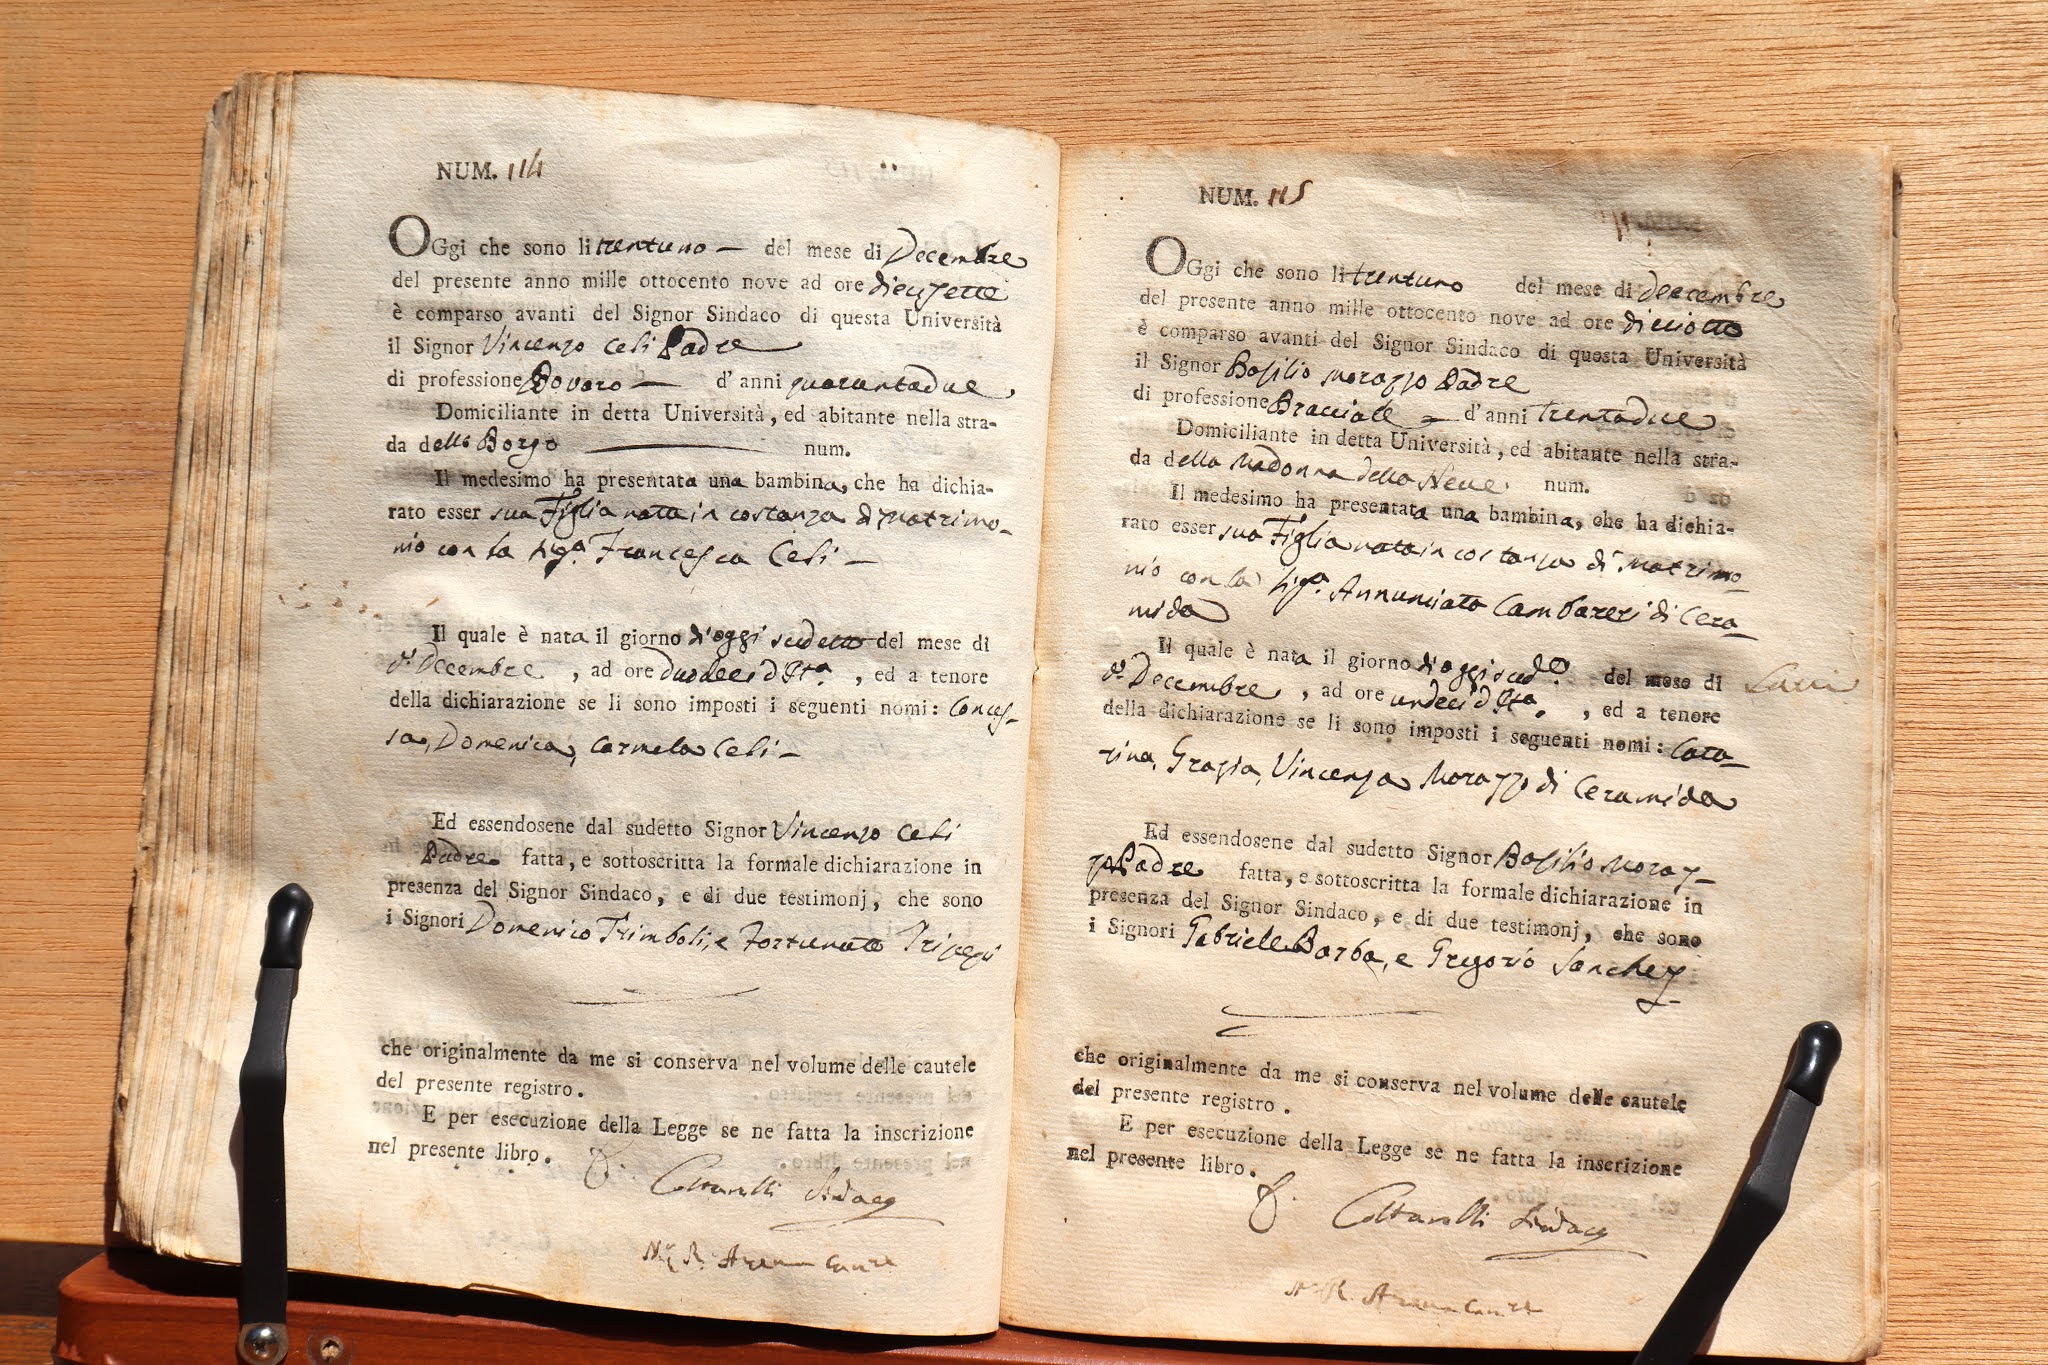 NUM. 114
OGgi che sono li trentuno — del mese di Decembre
del presente anno mille ottocento nove ad ore diecisette
è comparso avanti del Signor Sindaco di questa Università
il Signor Vincenzo Celi Padre
di professione Bovaro — d'anni quarantadue.
Domiciliante in detta Università, ed abitante nella stra-
da dello Borgo — num.
Il medesimo ha presentata una bambina, che ha dichia-
rato esser sua Figlia nata in costanza di Matrimo-
nio con la Sig.a Francesca Celi —
Il quale è nata il giorno di oggi sudetto del mese di
d.o Decembre , ad ore duodeci d'Ita. , ed a tenore
della dichiarazione se li sono imposti i seguenti nomi: Conces-
sa, Domenica, Carmela Celi —
Ed essendosene dal sudetto Signor Vincenzo Celi
Padre fatta, e sottoscritta la formale dichiarazione in
presenza del Signor Sindaco, e di due testimonj, che sono
i Signori Domenico Trimboli, e Fortunato Tripepi
che originalmente da me si conserva nel volume delle cautele
del presente registro.
E per esecuzione della Legge se ne fatta la inscrizione
nel presente libro.
Sindaco
Arena Canre
NUM. 115
OGgi che sono li trentuno del mese di decembre
del presente anno mille ottocento nove ad ore diciotto
è comparso avanti del Signor Sindaco di questa Università
il Signor Basilio Morazzo Padre
di professione Bracciale — d'anni trentadue
Domiciliante in detta Università, ed abitante nella stra-
da della Madonna della Neve. num.
Il medesimo ha presentata una bambina, che ha dichia-
rato esser sua Figlia nata in costanza di Matrimo-
nio con la Sig.a Annunciata Cambareri di Cera-
mida
Il quale è nata il giorno di oggi sud.o del mese di
d.o Decembre , ad ore undeci d'Ita. , ed a tenore
della dichiarazione se li sono imposti i seguenti nomi: Cata-
rina, Grazia, Vincenza Morazzo di Ceramida
Ed essendosene dal sudetto Signor Basilio Moraz-
zo Padre fatta, e sottoscritta la formale dichiarazione in
presenza del Signor Sindaco, e di due testimonj, che sono
i Signori Gabriele Barba, e Gregorio Sanchez
che originalmente da me si conserva nel volume delle cautele
del presente registro.
E per esecuzione della Legge se ne fatta la inscrizione
nel presente libro.
Sindaco
Arena Canre